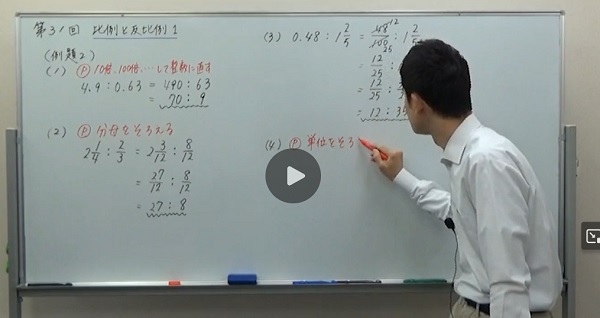 第31回 比例と反比例1
(例題2)
(1) Ⓟ 10倍,100倍,…して整数に直す
4.9 : 0.63 = 490 : 63
= 70 : 9
(2) Ⓟ 分母をそろえる
2 1/4 : 2/3 = 2 3/12 : 8/12
= 27/12 : 8/12
= 27 : 8
(3) 0.48 : 1 2/5 = 48/100 : 1 2/5
= 12/25 :
= 12/25 :
= 12 : 35
(4) Ⓟ 単位をそろ